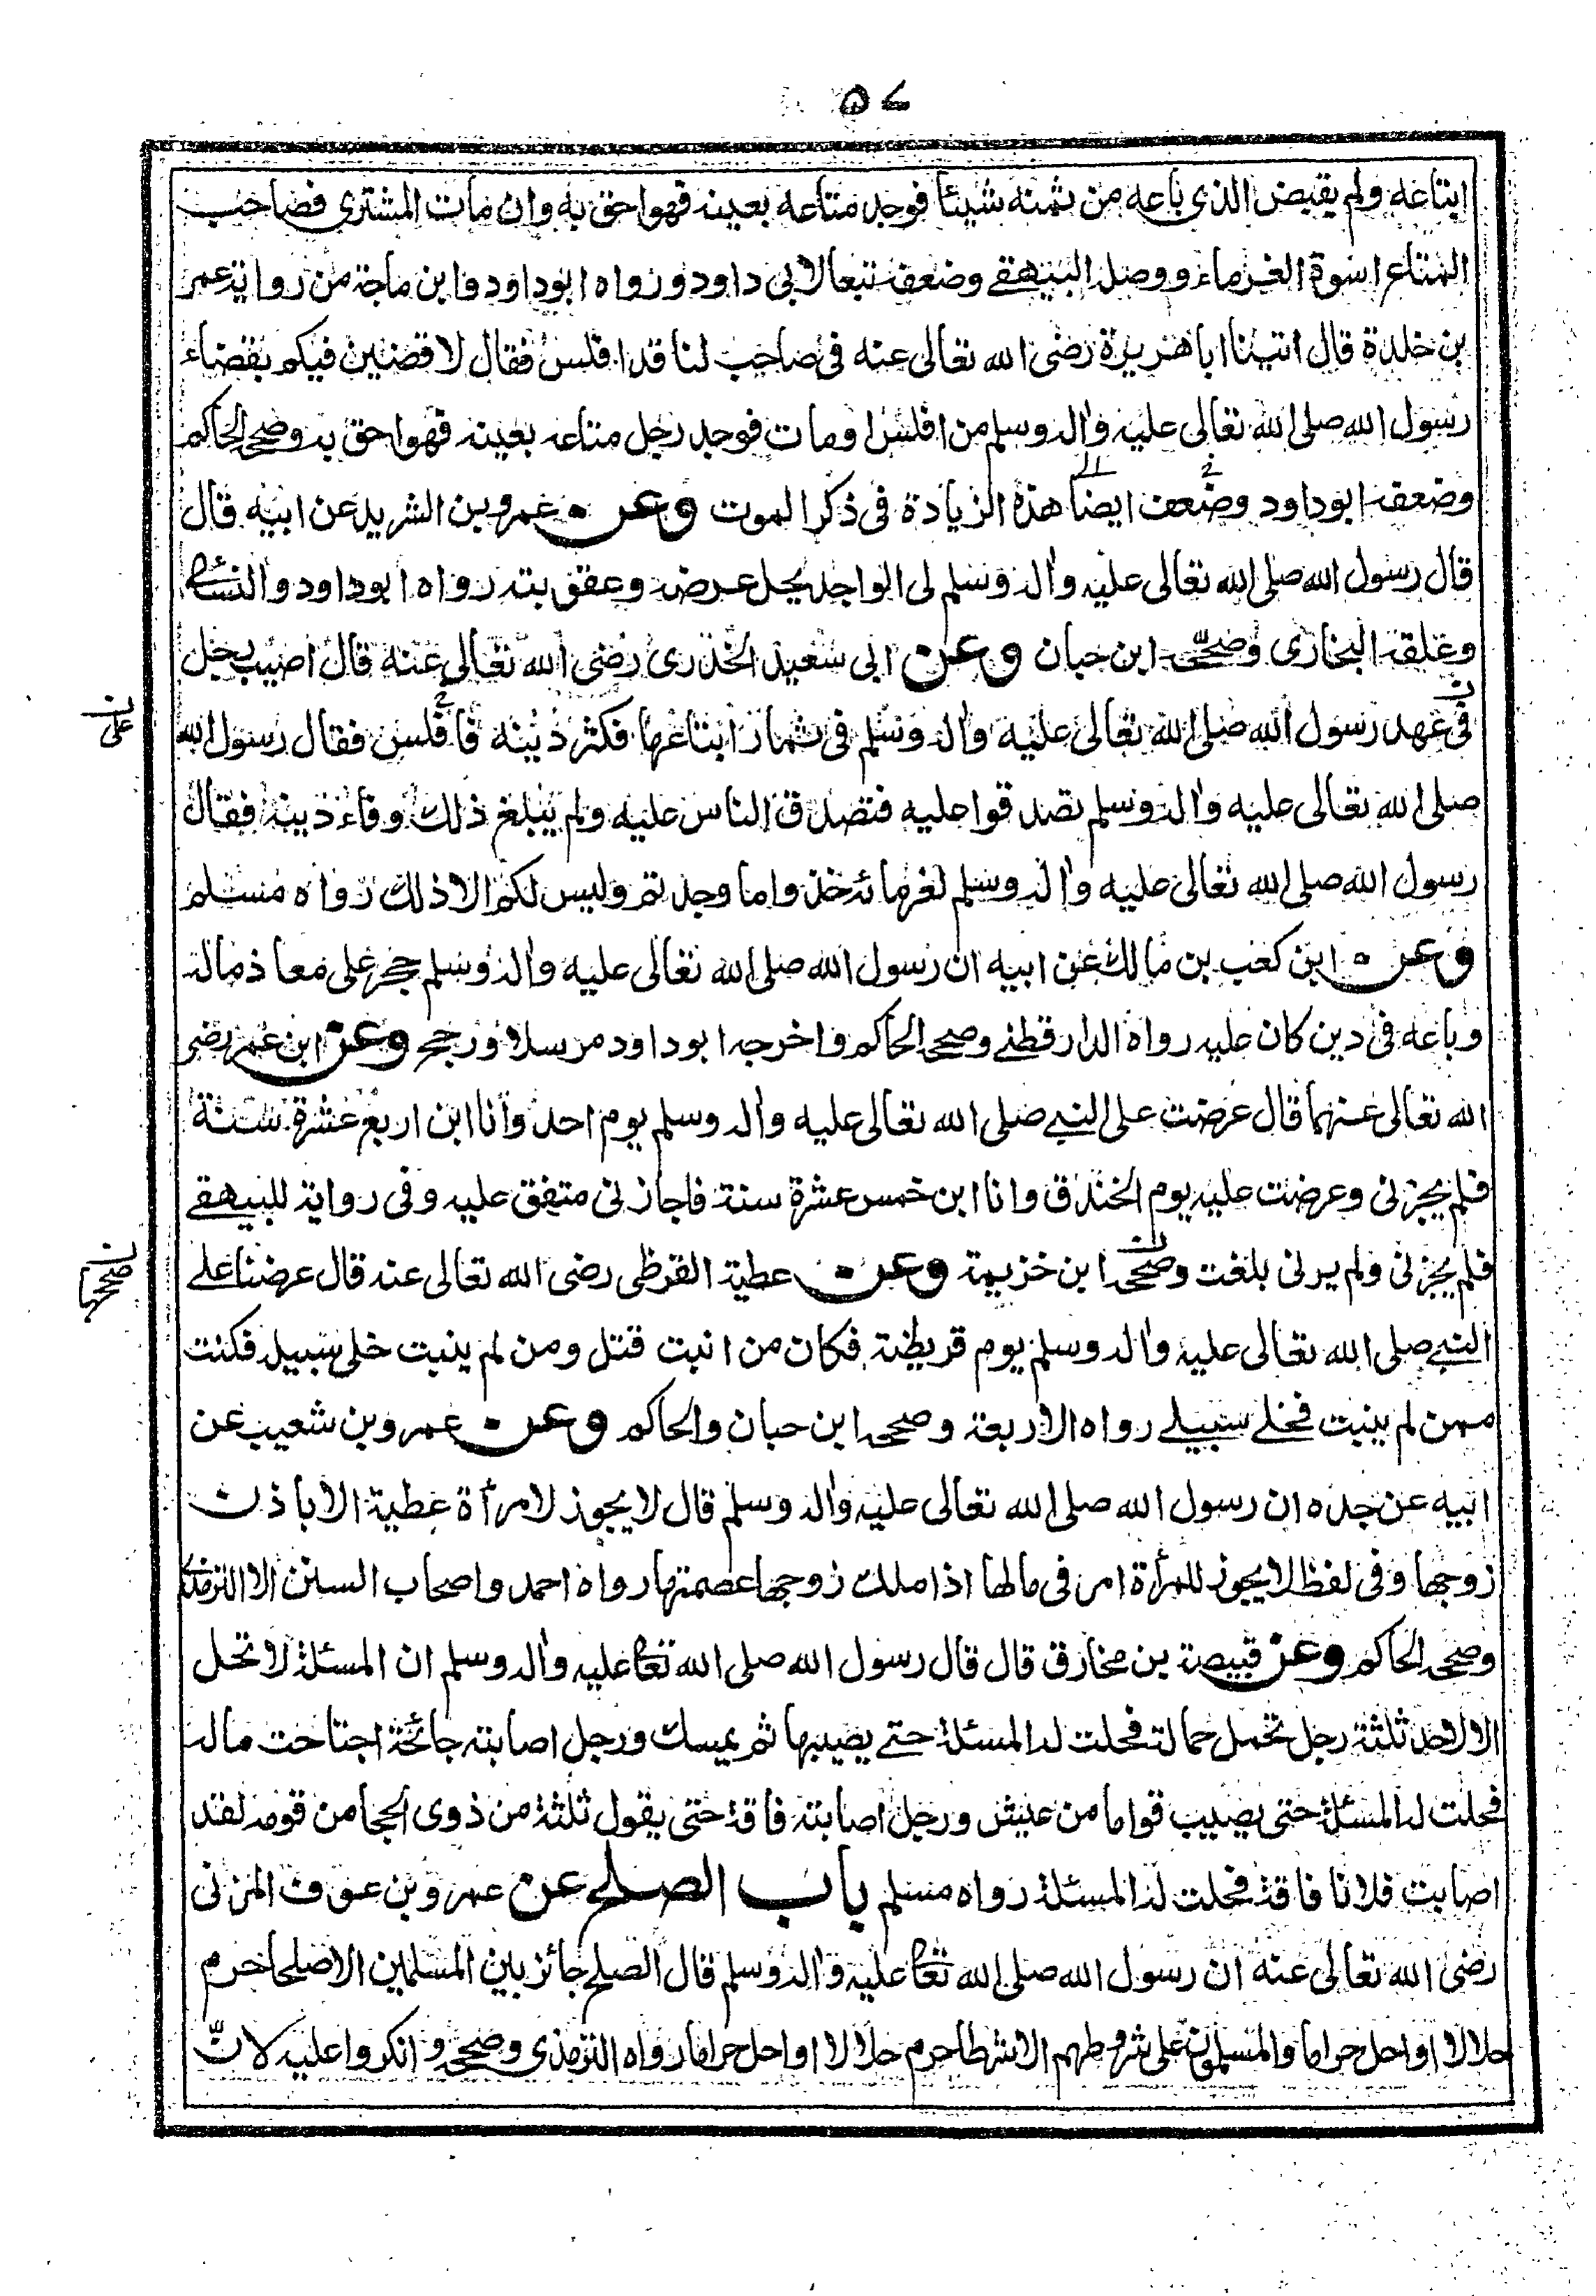 ٥٧
ابتاعه ولم يقبض الذي باعه من ثمنه شيئا فوجد متاعه بعينه فهو احق به وان مات المشترى فصاحب
المتاع اسوة الغرماء ووصله البيهقے وضعفه تبعا لابى داود ورواه ابوداود وابن ماجة من رواية عمر
بن خلدة قال اتينا ابا هريرة رضى الله تعالى عنه فى صاحب لنا قد افلس فقال لاقضين فيكم بقضاء
رسول الله صلى الله تعالى عليه واٰله وسلم من افلس او مات فوجد رجل متاعه بعينه فهو احق به وصححه الحاكم
وضعفه ابوداود وضعف ايضا هذه الزيادة فى ذكر الموت وعن عمرو بن الشريد عن ابيه قال
قال رسول الله صلى الله تعالى عليه واٰله وسلم لى الواجد يحل عرضه وعقوبته رواه ابوداود والنسائے
وعلقه البخارى وصححه ابن حبان وعن ابى سعيد الخدرى رضى الله تعالى عنه قال اصيب رجل
فى عهد رسول الله صلى الله تعالى عليه واٰله وسلم فى ثمار ابتاعها فكثر دينه فافلس فقال رسول الله
على
صلى الله تعالى عليه واٰله وسلم تصدقوا عليه فتصدق الناس عليه ولم يبلغ ذلك وفاء دينه فقال
رسول الله صلى الله تعالى عليه واٰله وسلم لغرمائه خذوا ما وجدتم وليس لكم الا ذلك رواه مسلم
وعن ابن كعب بن مالك عن ابيه ان رسول الله صلى الله تعالى عليه واٰله وسلم حجر على معاذ ماله
وباعه فى دين كان عليه رواه الدارقطنے وصححه الحاكم واخرجه ابوداود مرسلا ورجح وعن ابن عمر رضى
الله تعالى عنهما قال عرضت على النبے صلى الله تعالى عليه واٰله وسلم يوم احد وانا ابن اربع عشرة سنة
فلم يجزنى وعرضت عليه يوم الخندق وانا ابن خمس عشرة سنة فاجازنى متفق عليه وفى رواية للبيهقے
فلم يجزنى ولم يرنى بلغت وصححه ابن خزيمة وعن عطية القرظى رضى الله تعالى عنه قال عرضنا علے
صححها
النبے صلى الله تعالى عليه واٰله وسلم يوم قريظة فكان من انبت قتل ومن لم ينبت خلى سبيله فكنت
ممن لم ينبت فخلے سبيلے رواه الاربعة وصححه ابن حبان والحاكم وعن عمرو بن شعيب عن
ابيه عن جده ان رسول الله صلى الله تعالى عليه واٰله وسلم قال لا يجوز لامرأة عطية الا باذن
زوجها وفى لفظ لا يجوز للمرأة امر فى مالها اذا ملك زوجها عصمتها رواه احمد واصحاب السنن الا الترمذى
وصححه الحاكم وعن قبيصة بن مخارق قال قال رسول الله صلى الله تعالى عليه واٰله وسلم ان المسئلة لا تحل
الا لاحد ثلثة رجل تحمل حمالة فحلت له المسئلة حتے يصيبها ثم يمسك ورجل اصابته جائحة اجتاحت ماله
فحلت له المسئلة حتى يصيب قواما من عيش ورجل اصابته فاقة حتى يقول ثلثة من ذوى الحجا من قومه لقد
اصابت فلانا فاقة فحلت له المسئلة رواه مسلم باب الصلح عن عمرو بن عوف المزنى
رضى الله تعالى عنه ان رسول الله صلى الله تعالى عليه واٰله وسلم قال الصلح جائز بين المسلمين الا صلحا حرم
حلالا او احل حراما والمسلمون على شروطهم الا شرطا حرم حلالا او احل حراما رواه الترمذى وصححه وانكروا عليه لانّ